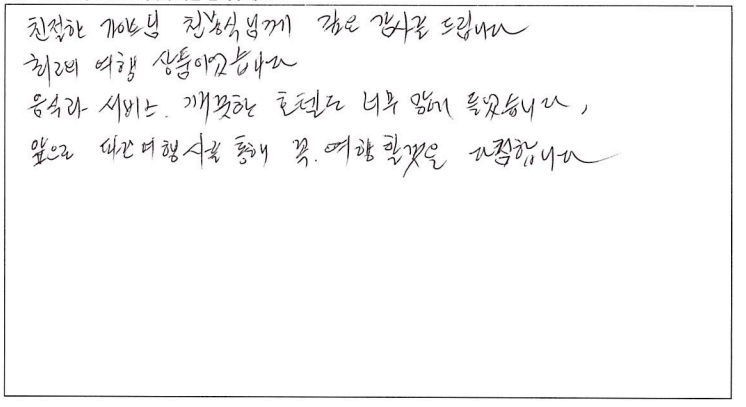 친절한 가이드님 천봉식님께 깊은 감사를 드립니다
최고의 여행 상품이었습니다
음식과 서비스. 깨끗한 호텔도 너무 맘에 들었습니다,
앞으로 여행사를 통해 꼭. 여행 할것을 다짐합니다